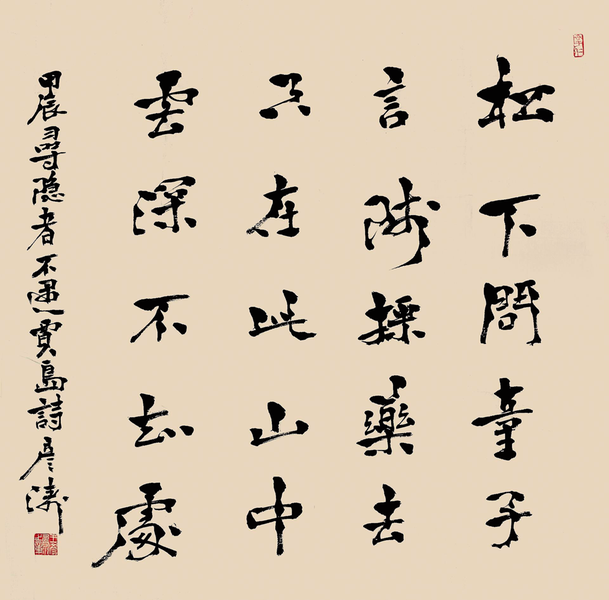 松下問童子
言師採藥去
只在此山中
雲深不知處
甲辰尋隐者不遇賈島詩彦涛